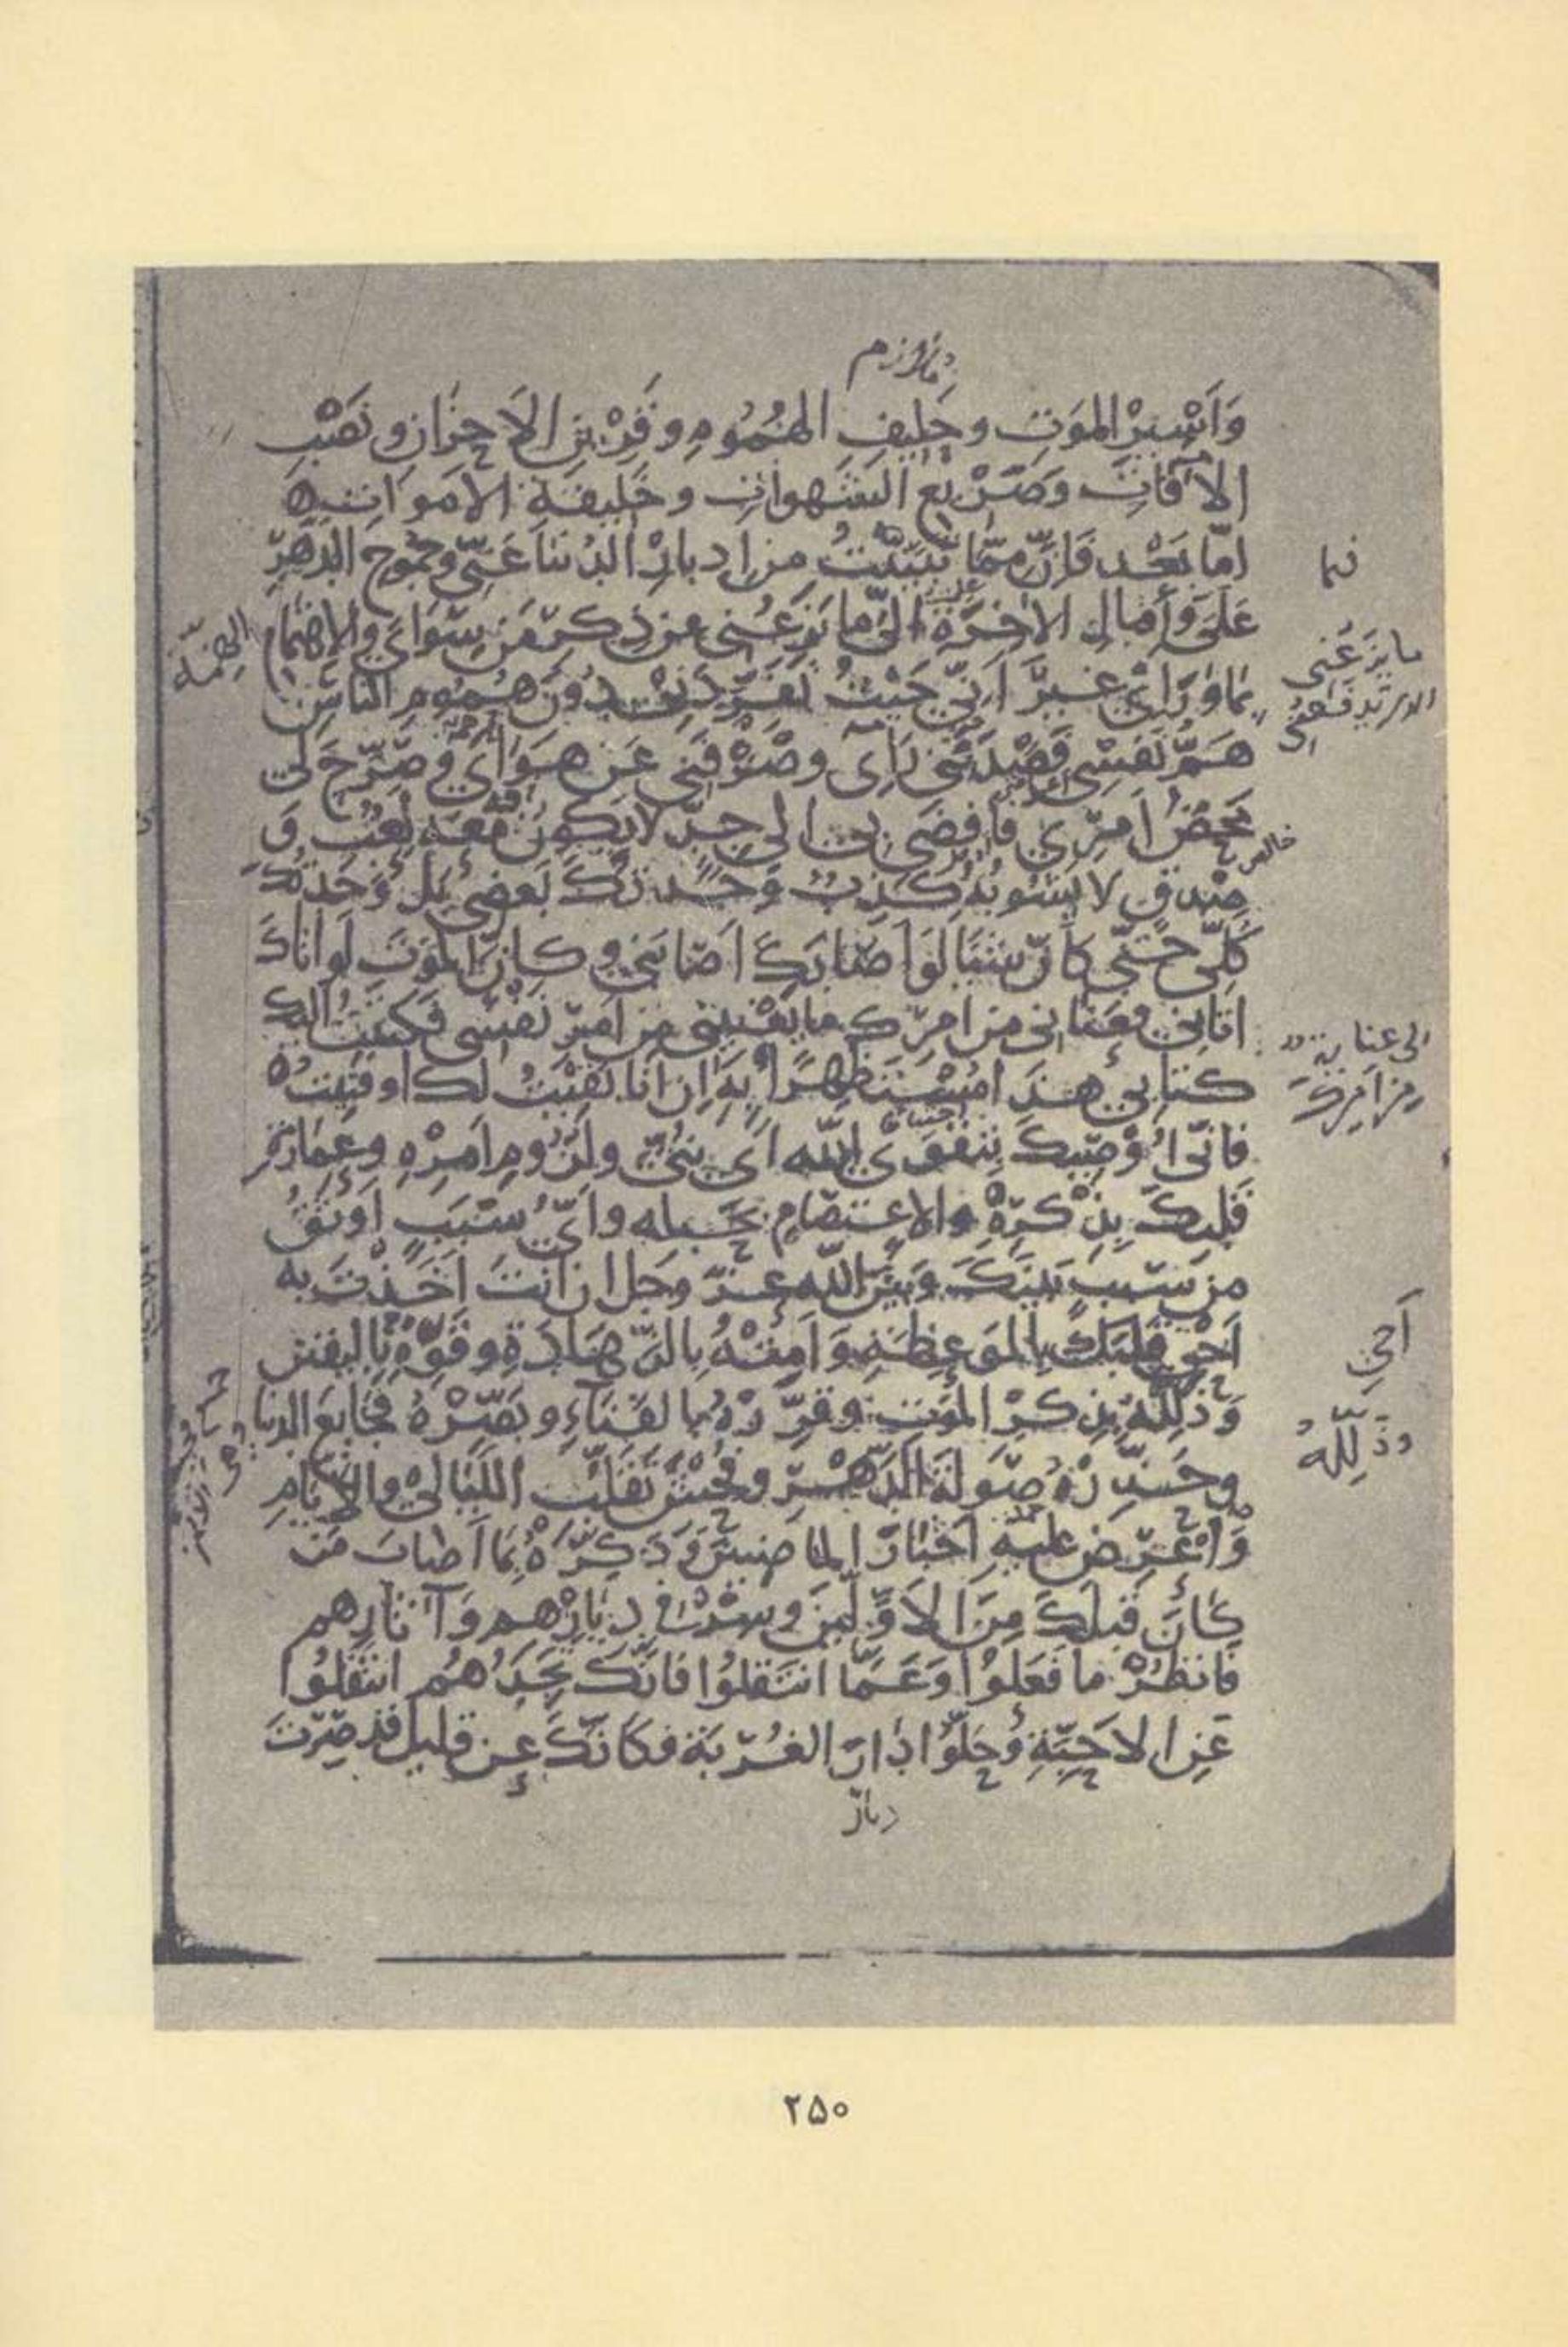 وَاَسِيرِ المَوتِ وحَلِيفِ الهُمُومِ وقَرِينِ الاَحزَانِ ونُصْبِ
الآفَاتِ وَصَرِيعِ الشَهَواتِ وخَلِيفَةِ الاَموَاتِ
امّا بَعْد فَاِنَّ مِمّا تَبَيَّنْتُ مِن اِدبارِ الدُنيَا عَنّي وجُمُوحِ الدَهرِ
عَلَيَّ وَاِقبالِ الاخِرَةِ اِلَيَّ ما يَزَعُنى عن ذِكرِ مَن سِوَايَ والاِهتِمامِ
بِمَا وَرَائي غيرَ اَنّي حَيْثُ تَفَرَّدَ بِي دُونَ هُمُومِ الناسِ
هَمُّ نَفسِي فَصَدَفَنِي رَاْيى وصَرَفَنى عَن هَوَايَ وصَرَّحَ لي
مَحضُ اَمرِي فَاَفضَى بى الى جِدٍّ لا يَكُونُ مَعَه لَعِبٌ وَ
صِدقٍ لا يَشُوبُهُ كَذِبٌ وَجَدتُكَ بَعضى بَل وَجَدتُكَ
كُلّي حَتّى كَاَنَّ شَيئا لَو اَصَابَكَ اَصَابَني وكاَنَّ المَوتَ لَو اَتَاكَ
اَتَانى فعَنانى من اَمرِكَ ما يَعْنينى مِن اَمرِ نَفسى فكَتَبتُ اليك
كتابى هذا مُسْتَظهِرًا بِهِ اِن اَنا بَقِيتُ لك او فَنِيتُ
فاِنّى اُوْصِيكَ بِتَقوَى اللّه اَى بُنَيَّ ولُزُومِ اَمرِهِ وعِمَارَةِ
قَلبِكَ بِذِكرِهِ والاِعتِصَامِ بحَبلِه واَيُّ سَبَبٍ اَوثَقُ
مِن سَبَبٍ بَينَكَ وَبَينَ اللّه عزَّ وجَلَّ ان اَنتَ اَخَذْتَ به
اَحيِ قَلبَكَ بِالمَوعِظَةِ وَاَمِتْهُ بِالزَّهَادَةِ وقَوِّهِ بِاليقين
وَذَلِّلهُ بِذِكرِ المَوتِ وقَرِّرهُ بالفَنَاءِ وبَصِّرهُ فَجَايعَ الدنيا
وحَذِّرهُ صَولَةَ الدَّهرِ وفُحْشَ تَقَلُّبِ اللَّيَالى والاَيّامِ
وَاعرِض عَلَيهِ اَخبارَ الماضينَ وَذَكِّرهُ بِمَا اَصَابَ مَن
كانَ قَبلَكَ مِنَ الاَوَّلِينَ وسِرْ فى دِيَارِهم وَآثَارِهم
فَانظُرْ ما فَعَلُوا وَعَمَّا انتَقَلُوا فاِنَّكَ تَجِدُهُم انتَقَلُوا
عَنِ الاَحِبَّةِ وحَلُّوا دَارَ الغُربَةِ فكَاَنَّكَ عن قليل قد صِرْتَ
ديار
فما
ما يَزَعُنى
الهمّة
خالص
مِن اَمرِكَ
اَحيِ
وذَلِّلهُ
۲۵۰